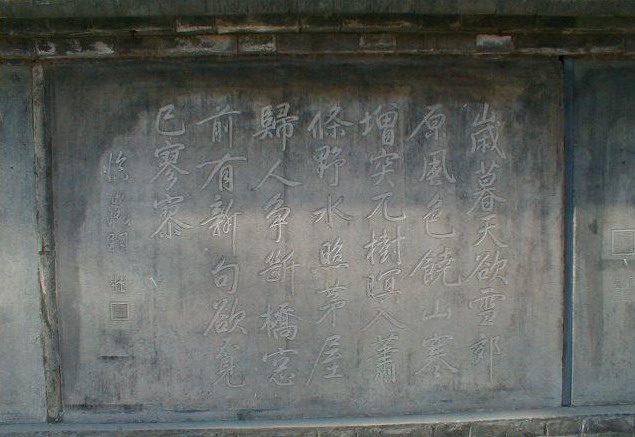 歲暮天欲雪郊
原風色饒山寒
增突兀樹暝入蕭
條野水照茅屋
歸人爭斷橋窓
前有新句欲覓
已寥寥